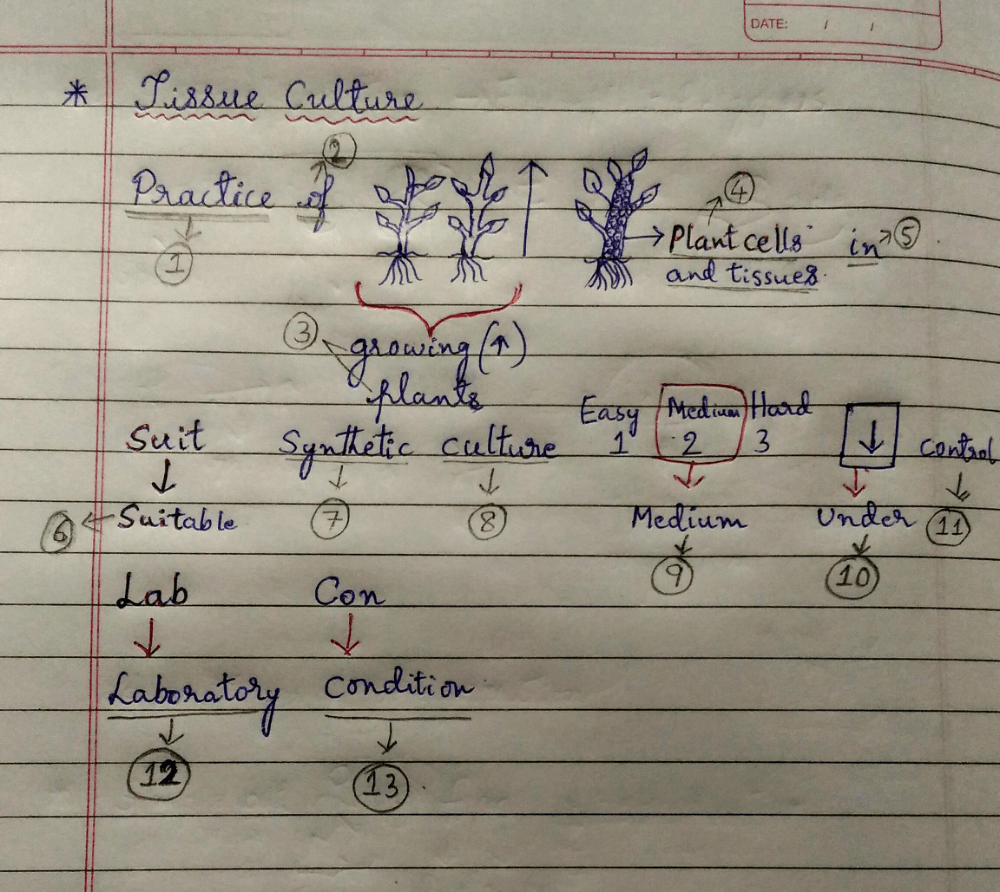 DATE: / /
* Tissue Culture
2
Practice of
4
Plant cells in 5
1
and tissues.
3 growing (↑)
plants
Easy Medium Hard
Suit Synthetic culture 1 2 3 ↓ Control
6 Suitable 7 8 Medium Under 11
9 10
Lab Con
Laboratory Condition
12 13